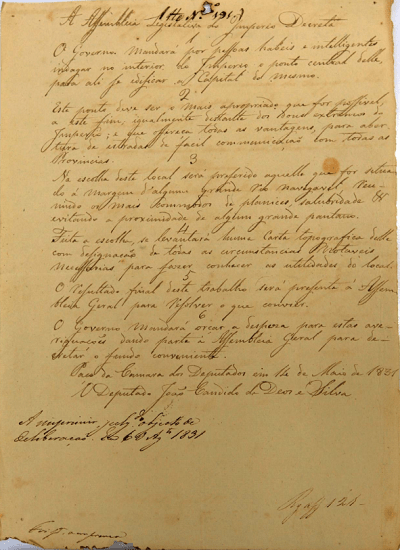 A Assembléa Legislativa do Imperio Decreta
O Governo Mandará por pessoas habeis e intelligentes
indagar no interior do Imperio o ponto central delle,
para ali se edificar a Capital do mesmo.
2
Este ponto deve ser o mais apropriado que for possivel,
a este fim, igualmente distante dos extremos do
Imperio; e que offereça todas as vantagens, para aber-
tura de estradas de facil communicação com todas as
Provincias.
3
Na escolha deste local será preferido aquelle que for situa-
do á margem d'algum grande Rio navegavel, reu-
nindo os mais commodos de planicies, salubridade &
evitando a proximidade de algum grande pantano.
4
Feita a escolha, se levantará huma Carta topografica delle
com designação de todas as circunstancias
necessarias para fazer conhecer as utilidades do local.
5
O resultado final deste trabalho será presente á Assem-
bléa Geral para resolver o que convier.
6
O Governo Mandará orçar a despeza para estas ave-
riguações dando parte á Assembléa Geral para de-
cretar o fundo conveniente.
Paço da Camara dos Deputados em 14 de Maio de 1831
O Deputado João Candido de Deos e Silva
A imprimir julg. objecto de
deliberação. 6 de 1831